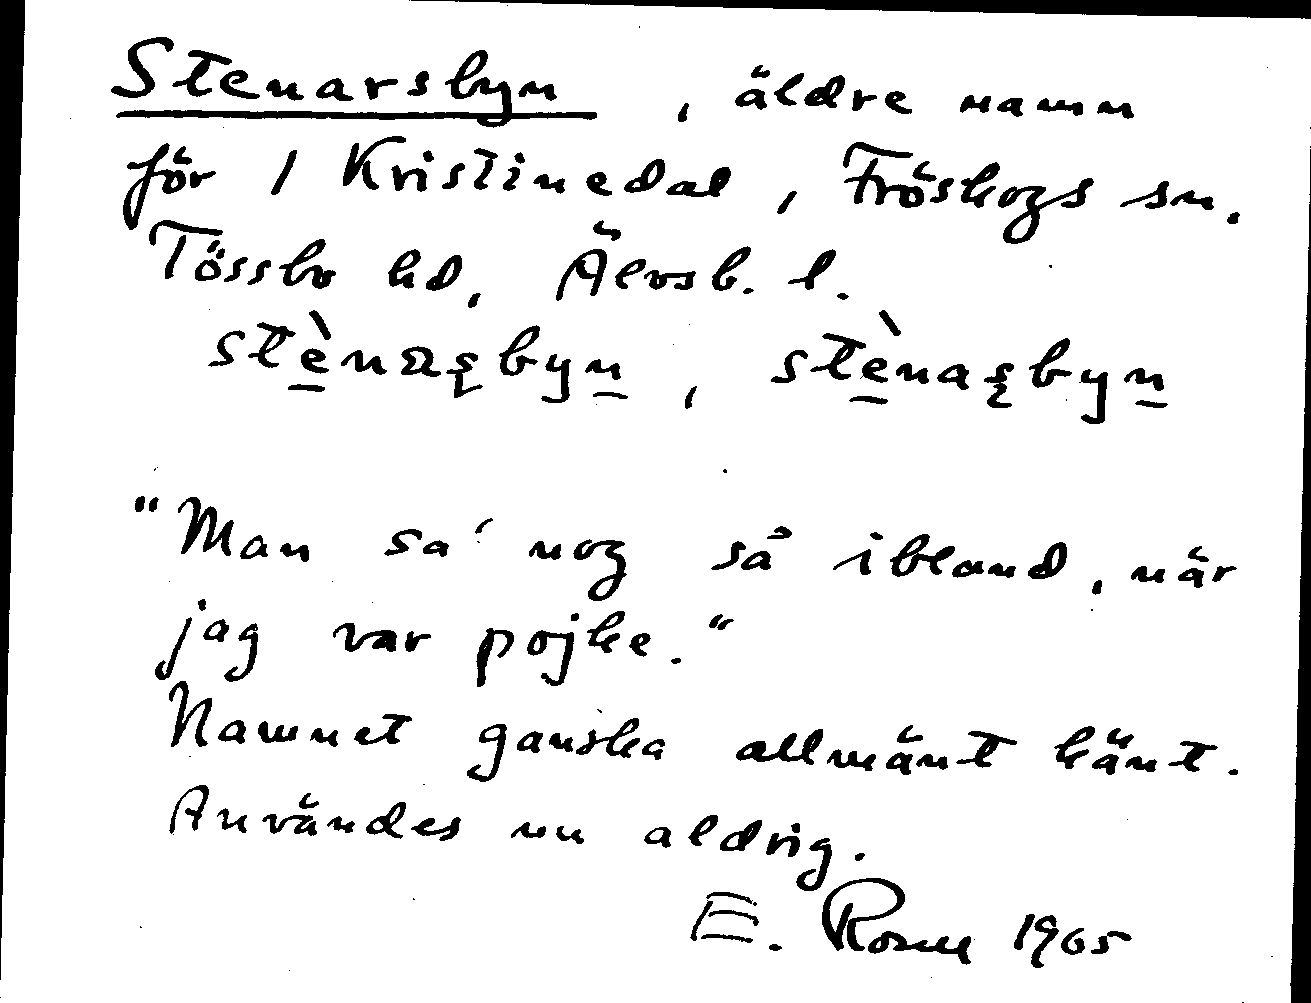 Stenarsbyn, äldre namn
för 1 Kristinedal, Fröskogs sn.
Tössbo hd, Älvsb. l.
stènaʂbyn, stènaʂbyn
"Man sa' nog så ibland, när
jag var pojke."
Namnet ganska allmänt känt.
Användes nu aldrig.
E. Rosell 1965